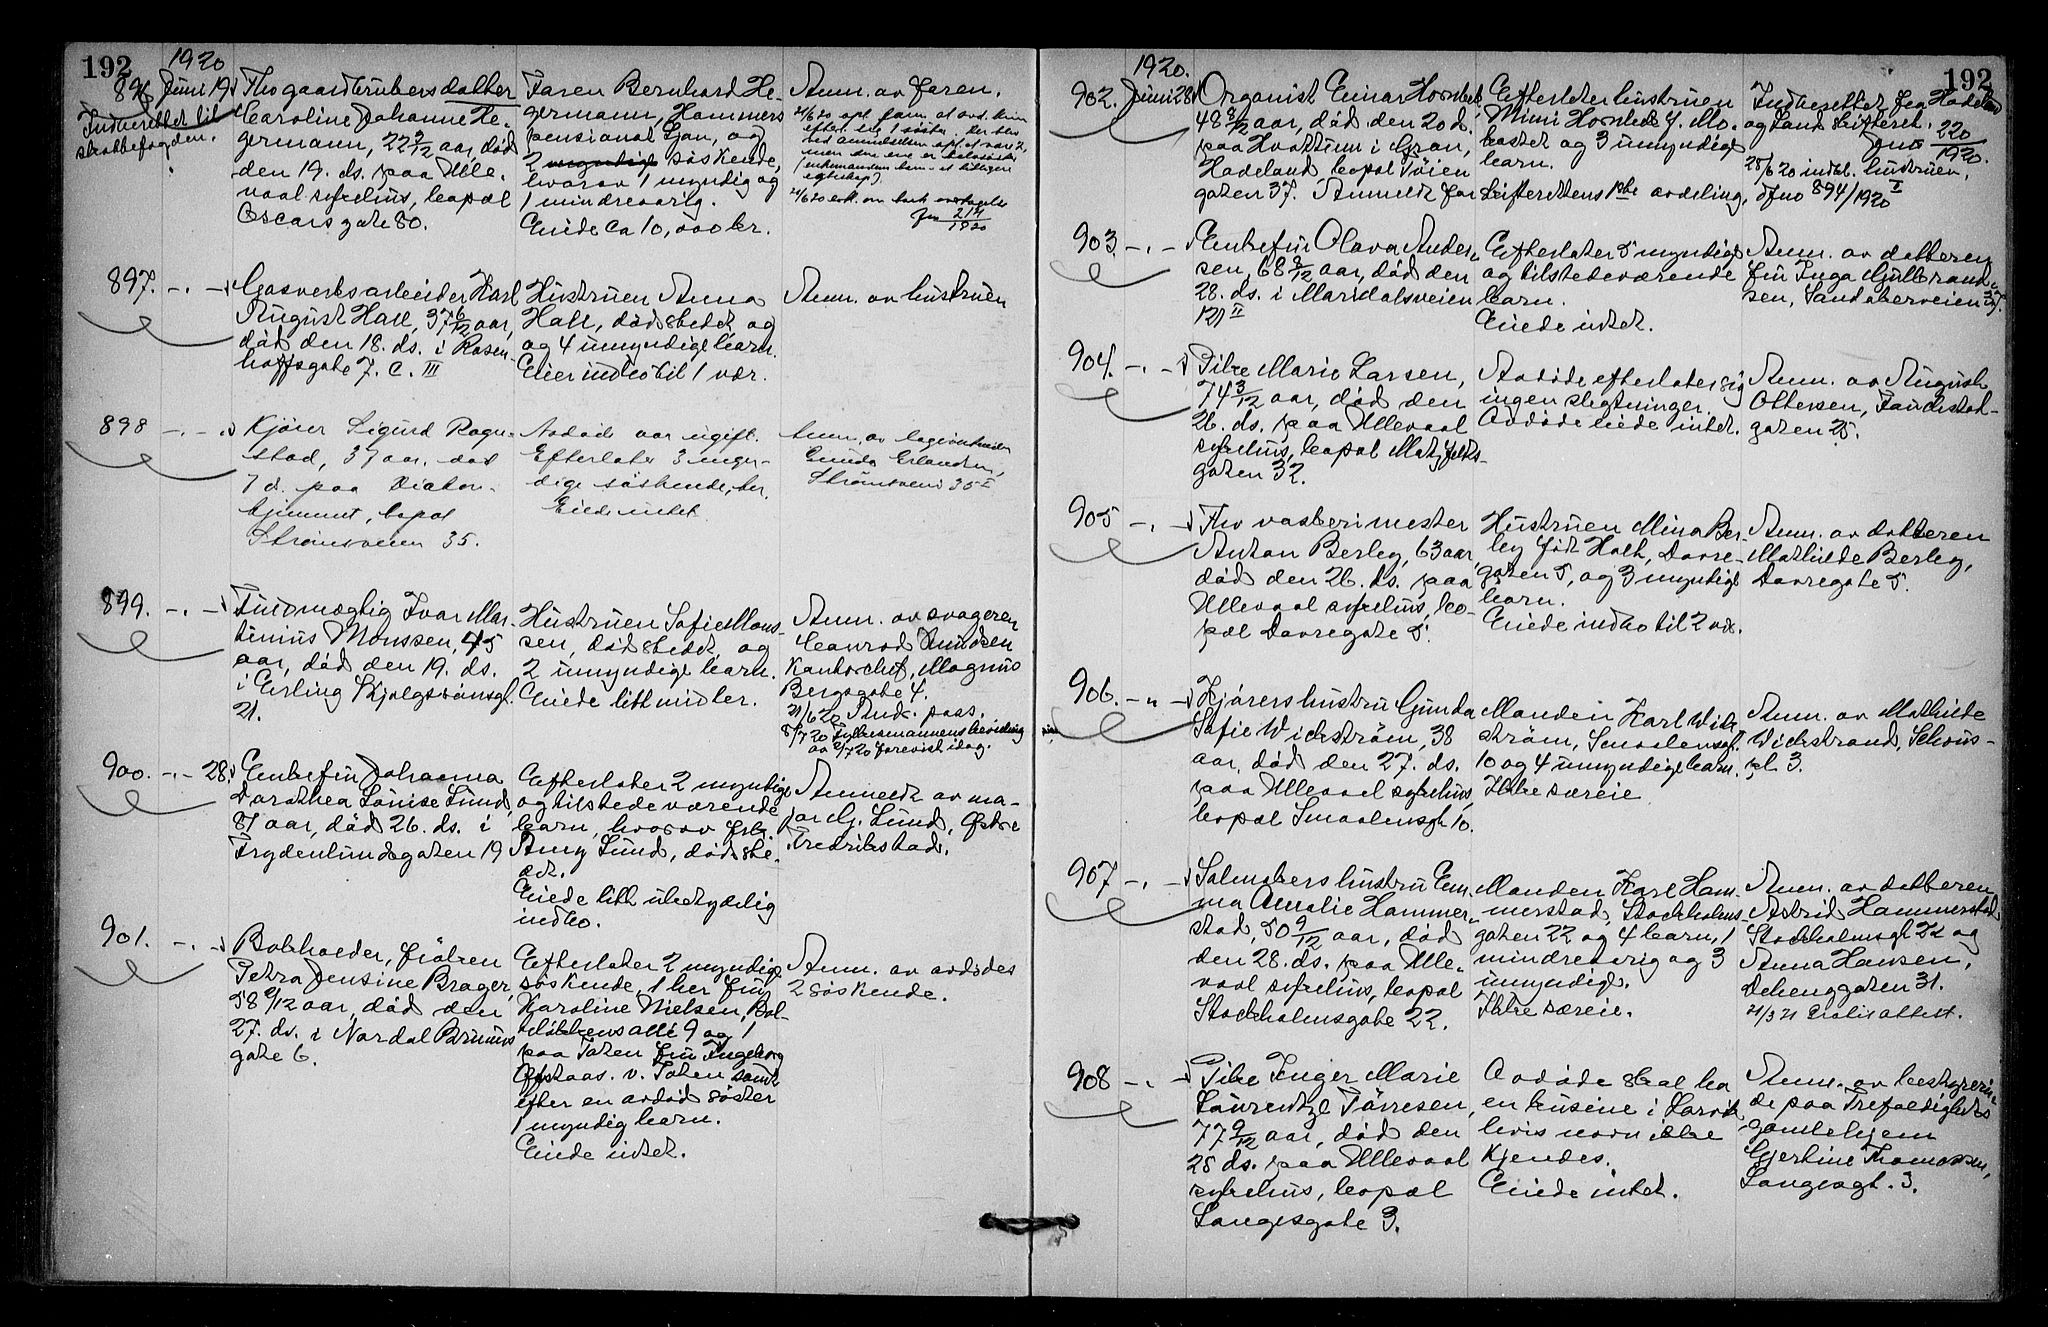 192
1920
896 Juni 19
Indberettet til
skattefogden.
Fhv gaardbrukers datter
Caroline Johanne He-
germann, 22 9/12 aar, død
den 19. ds. paa Ulle-
vaal sykehus, bopæl
Oscars gate 80.
Faren Bernhard He-
germann, Hammers
pensionat Ljan, og
2 søskende,
hvorav 1 myndig og
1 mindreaarig.
Eiede ca 10,000 kr.
Anm. av faren.
897. -.-
Gasverksarbeider Karl
August Hall, 37 6/12 aar,
død den 18. ds. i Rosen-
hoffsgate 7. C. III
Hustruen Anna
Hall, dødsstedet, og
og 4 umyndige barn.
Eier indbo til 1 vær.
Anm. av hustruen
898 -.-
Kjører Sigurd Rogn-
stad, 37 aar, død
7 d. paa Diakon-
hjemmet, bopæl
Strømsveien 35.
Avdøde var ugift.
Efterlater 3 myn-
dige søskende, her.
Eiede intet
Anm. av logivertinden
Gunda Erlandsen,
Strømsvei 35 I
899. -.-
Fuldmægtig Ivar Mar-
tinius Monssen, 45
aar, død den 19. ds.
i Erling Skjalgssønsgt.
21.
Hustruen Sofie Mons-
sen, dødsstedet, og
2 umyndige barn.
Eiede litt midler.
Anm. av svogeren
Conrad Knudsen
Kontorchef, Magnus
Bergsgate 4.
21/6 20 Andr. pass.
8/7 20 Fylkesmannens bevilling
av 2/7 20 forevist idag.
900. -.- 28.
Enkefru Johanna
Dorothea Louise Lund,
81 aar, død 26. ds. i
Frydenlundsgaten 19
Efterlater 2 myndige
og tilstedeværende
barn, hvorav frk.
Amy Lund, dødsste-
det.
Eiede litt ubetydelig
indbo.
Anmeldt av ma-
jor G. Lund, Østre
Fredrikstad.
901. -.-
Bokholder, frøken
Petra Jensine Brager,
58 9/12 aar, død den
27. ds. i Nordal Bruuns
gate 6.
Efterlater 2 myndige
søskende, 1 her fru
Karoline Nielsen, Bol-
teløkkens allé 9 og 1
paa Toten fru Ingeborg
v. Toten samt
efter en avdød søster
1 myndig barn.
Eiede intet.
Anm. av avdødes
2 søskende.
192
1920.
902. Juni 28
Organist Einar Hornbek,
48 8/12 aar, død den 20 d.
paa Hvattum i Gran,
Hadeland, bopæl Tøien
gaten 37. Anmeldt for
Efterlater hustruen
Mimi Hornbek f. Mo-
bostet og 3 umyndige
barn.
skifterettens 1ste avdeling,
Indberettet fra Hadeland
og Land skifteret.
Jno 220/1920.
28/6 20 indk. hustruen.
Jno 894/1920 I
903. -.-
Enkefru Olava Ander-
sen, 68 8/12 aar, død den
28. ds. i Maridalsveien
121 II
Efterlater 5 myndige
og tilstedeværende
barn.
Eiede intet.
Anm. av datteren
fru Inga Gulbrand-
sen, Sandakerveien 37.
904. -.-
Pike Marie Larsen,
74 3/12 aar, død den
26. ds. paa Ullevaal
sykehus, bopæl Motzfeldts-
gaten 32.
Avdøde efterlater sig
ingen slegtninger.
Avdøde eiede intet.
Anm. av August
Ottersen, Tøndestad-
gaten 25.
905 -.-
Fhv vaskerimester
Anton Berley, 63 aar,
død den 26. ds. paa
Ullevaal sykehus, bo-
pæl Dovregate 5.
Hustruen Mina Ber-
ley født Holt, Dovre-
gaten 5, og 3 myndige
barn.
Eiede indbo til 2 vær.
Anm. av datteren
Mathilde Berley,
Dovregate 5.
906. -"-
Kjørers hustru Gunda
Sofie Wickstrøm, 38
aar, død den 27. ds.
paa Ullevaal sykehus,
bopæl Smaalensgt 10.
Manden Karl Wick-
strøm, Smaalensgt.
10 og 4 umyndige barn.
Ikke særeie.
Anm. av Mathilde
Wickstrand, Schous-
pl. 3.
907 -.-
Salmakers hustru Em-
ma Amalie Hammer-
stad, 50 9/12 aar, død
den 28. ds. paa Ulle-
vaal sykehus, bopæl
Stockholmsgate 22.
Manden Karl Ham-
merstad, Stockholms-
gaten 22 og 4 barn, 1
mindreaarig og 3
umyndige.
Ikke særeie.
Anm. av datteren
Astrid Hammerstad
Stockholmsgt 22 og
Anna Hansen,
Dehenggaten 31.
21/3 21 Gratis attest.
908 -.-
Pike Inger Marie
Laurentze Tørresen,
77 9/12 aar, død den
28 ds. paa Ullevaal
sykehus, bopæl
Langesgate 3.
Avdøde skal ha
en kusine i Larvik,
hvis navn ikke
kjendes.
Eiede intet.
Anm. av bestyrerin-
de paa Trefoldigheds
gamlehjem
Gjertine Thomassen,
Langesgt. 3.